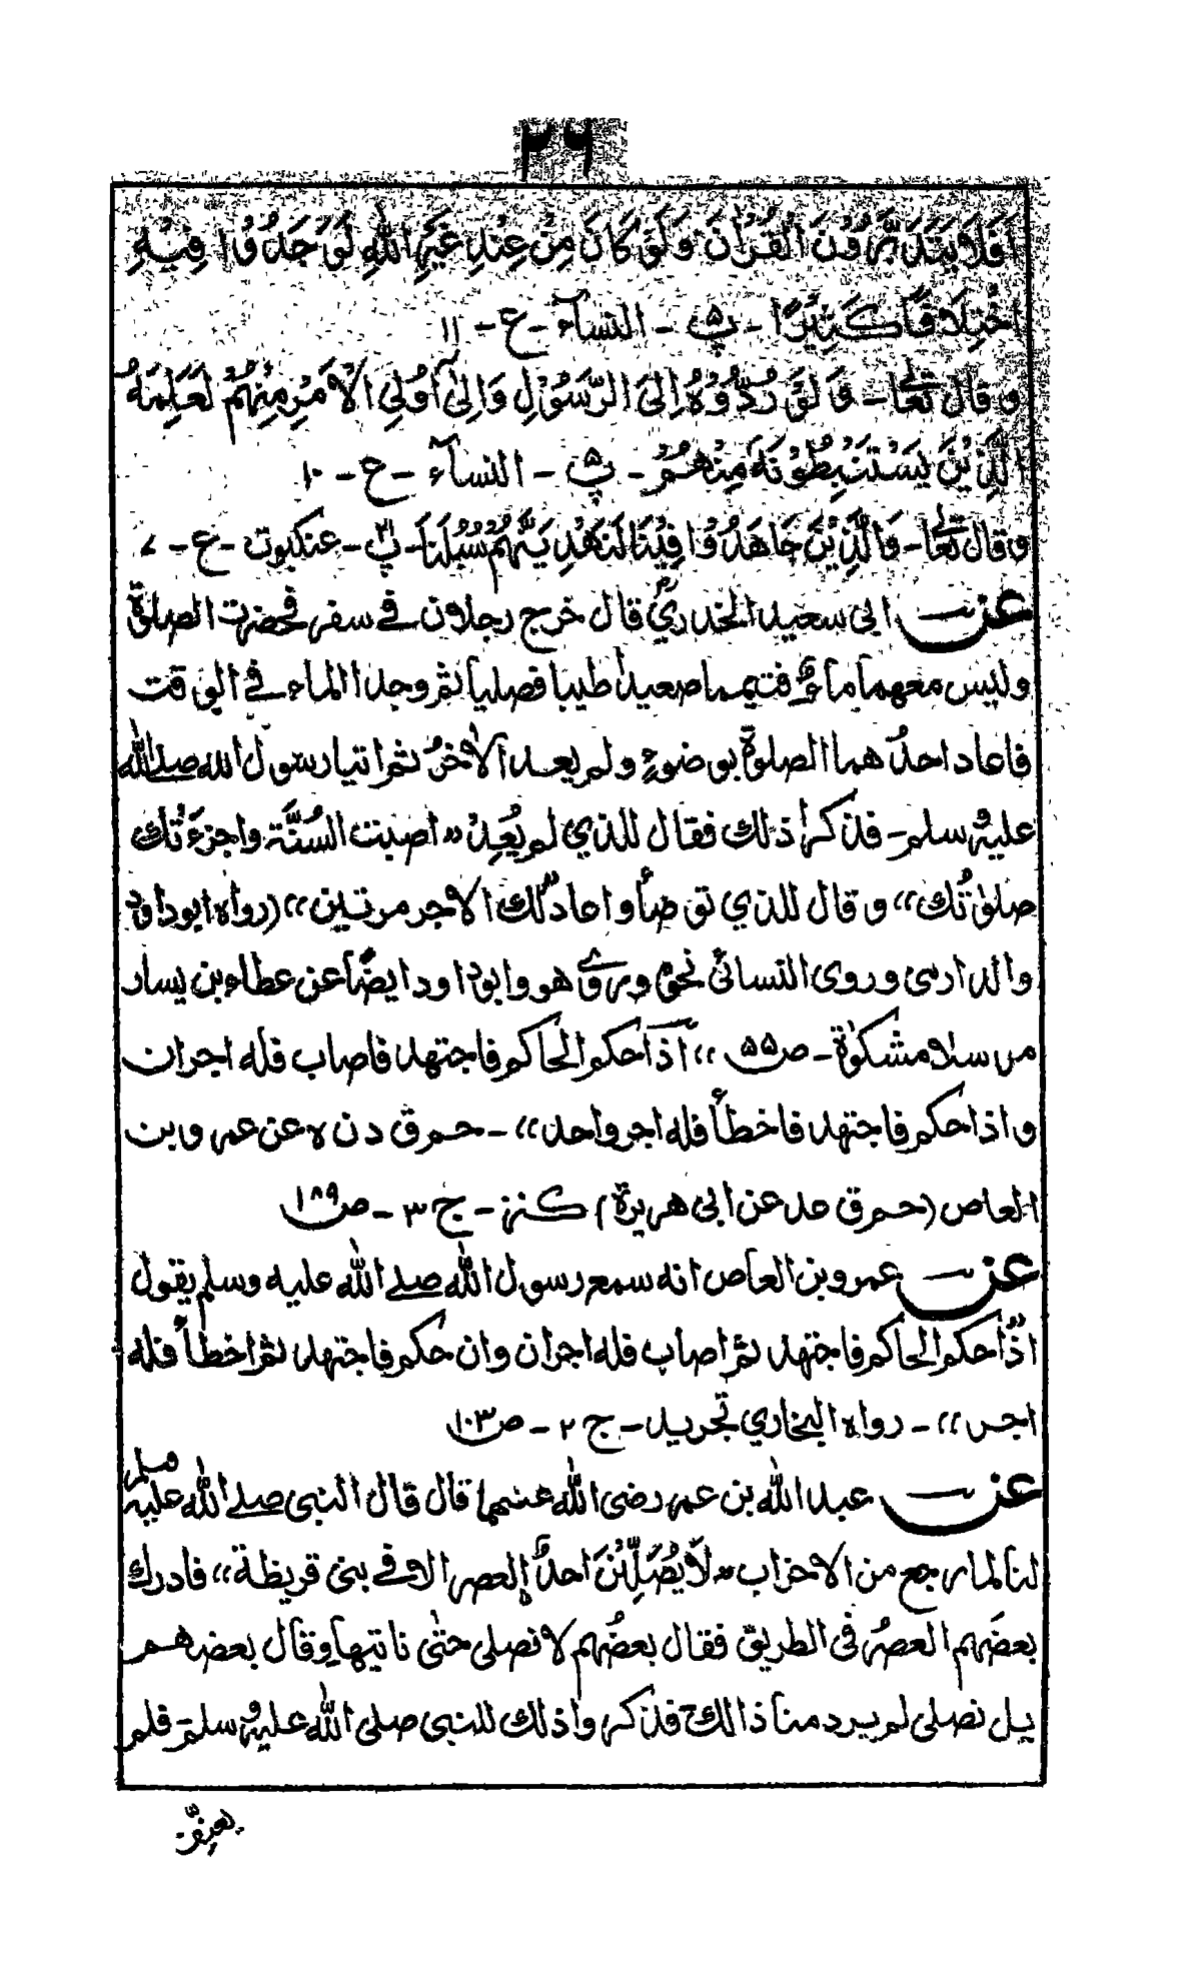 ٢٦
اَفَلَا يَتَدَبَّرُوْنَ الْقُرْاٰنَ وَلَوْ كَانَ مِنْ عِنْدِ غَيْرِ اللّٰهِ لَوَجَدُوْا فِيْهِ
اخْتِلَافًا كَثِيْرًا - پ۵ - النسآء - ع - ۱۱
وقال تعالٰى - وَلَوْ رُدُّوْهُ اِلَى الرَّسُوْلِ وَاِلٰى اُولِى الْاَمْرِ مِنْهُمْ لَعَلِمَهُ
الَّذِيْنَ يَسْتَنْبِطُوْنَهٗ مِنْهُمْ - پ۵ - النسآء - ع - ۱۰
وقال تعالٰى - وَالَّذِيْنَ جَاهَدُوْا فِيْنَا لَنَهْدِيَنَّهُمْ سُبُلَنَا - پ۲۱ - عنكبوت - ع - ۷
عن ابى سعيد الخدريؓ قال خرج رجلان فى سفر فحضرت الصلوٰة
وليس معهما ماءٌ فتيمما صعيدا طيبا فصليا ثم وجدا الماء فى الوقت
فاعاد احدُهما الصلوٰة بوضوءٍ ولم يعد الاٰخرُ ثم اتيا رسول الله صلے الله
عليه وسلم - فذكرا ذٰلك فقال للذي لم يُعِدْ «اصبت السُنَّة واجزءَتك
صلوٰتُك» وقال للذي توضأ واعاد لك الاجر مرتين» (رواه ابوداود
والدارمى وروى النسائى نحوه وروى هو وابوداود ايضًا عن عطاء بن يسار
مرسلا مشكوٰة - ص۵۵ «اذا حكم الحاكم فاجتهد فاصاب فله اجران
واذا حكم فاجتهد فاخطأ فله اجر واحد» - حم ق د ن ه عن عمرو بن
العاص (حم ق عد عن ابى هريرة) كنز - ج ۳ - ص۱۸۹
عن عمرو بن العاص انه سمع رسول الله صلے الله عليه وسلم يقول
«اذا حكم الحاكم فاجتهد ثم اصاب فله اجران وان حكم فاجتهد ثم اخطأ فله
اجر» - رواه البخاري تجريد - ج ۲ - ص۱۰۳
عن عبد الله بن عمر رضى الله عنهما قال قال النبى صلے الله عليه وسلم
لنا لما رجع من الاحزاب «لَا يُصَلِّيَنَّ احدٌ العصر الا فى بنى قريظة» فادرك
بعضَهم العصرُ فى الطريق فقال بعضُهم لا نصلى حتىٰ ناتيها وقال بعضهم
بل نصلى لم يرد منا ذالك فذكروا ذلك للنبى صلى الله عليه وسلم فلم
يعنف